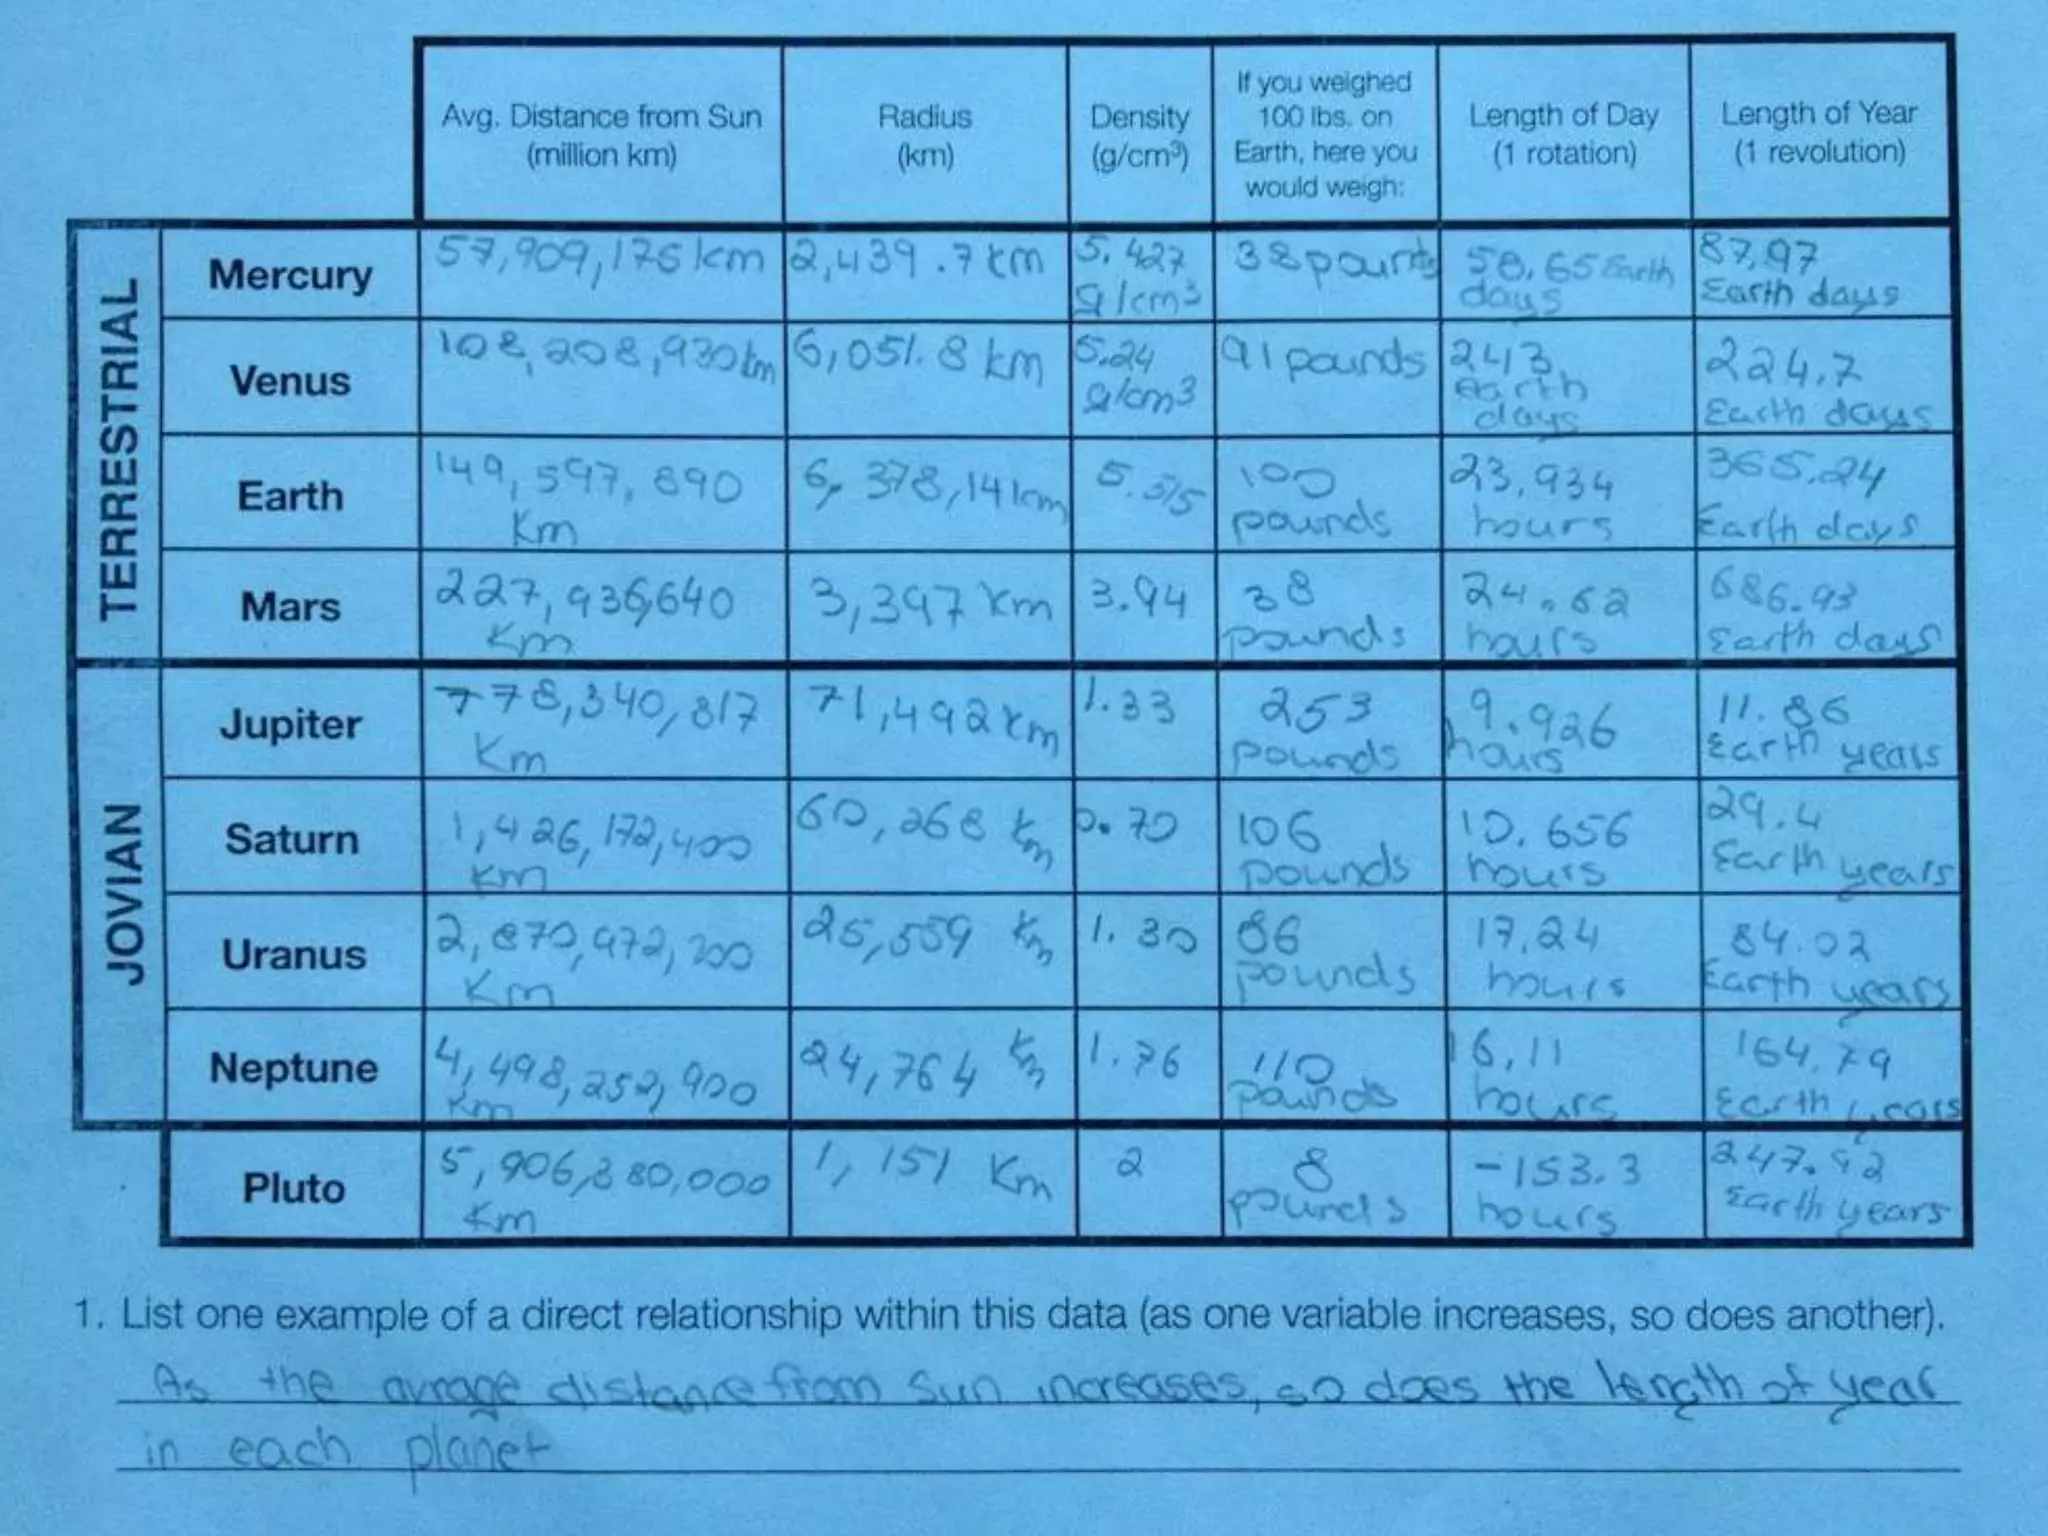 Avg. Distance from Sun (million km) Radius (km) Density (g/cm³) If you weighed 100 lbs. on Earth, here you would weigh: Length of Day (1 rotation) Length of Year (1 revolution)
TERRESTRIAL
Mercury 57,909,175 km 2,439.7 km 5.427 g/cm³ 38 pounds 58.65 Earth days 87.97 Earth days
Venus 108,208,930 km 6,051.8 km 5.24 g/cm3 91 pounds 243 Earth days 224.7 Earth days
Earth 149,597,890 Km 6,378,14 km 5.515 100 pounds 23,934 hours 365.24 Earth days
Mars 227,936,640 Km 3,397 Km 3.94 38 pounds 24.62 hours 686.93 Earth days
JOVIAN
Jupiter 778,340,817 Km 71,492 km 1.33 253 pounds 9.926 hours 11.86 Earth years
Saturn 1,426,172,400 Km 60,268 Km 0.70 106 pounds 10.656 hours 29.4 Earth years
Uranus 2,870,972,200 Km 25,559 Km 1.30 86 pounds 17.24 hours 84.02 Earth years
Neptune 4,498,252,900 Km 24,764 Km 1.76 110 pounds 16,11 hours 164.79 Earth years
Pluto 5,906,380,000 Km 1,151 Km 2 8 pounds -153.3 hours 247.92 Earth years
1. List one example of a direct relationship within this data (as one variable increases, so does another).
As the avrage distance from Sun increases, so does the length of year
in each planet